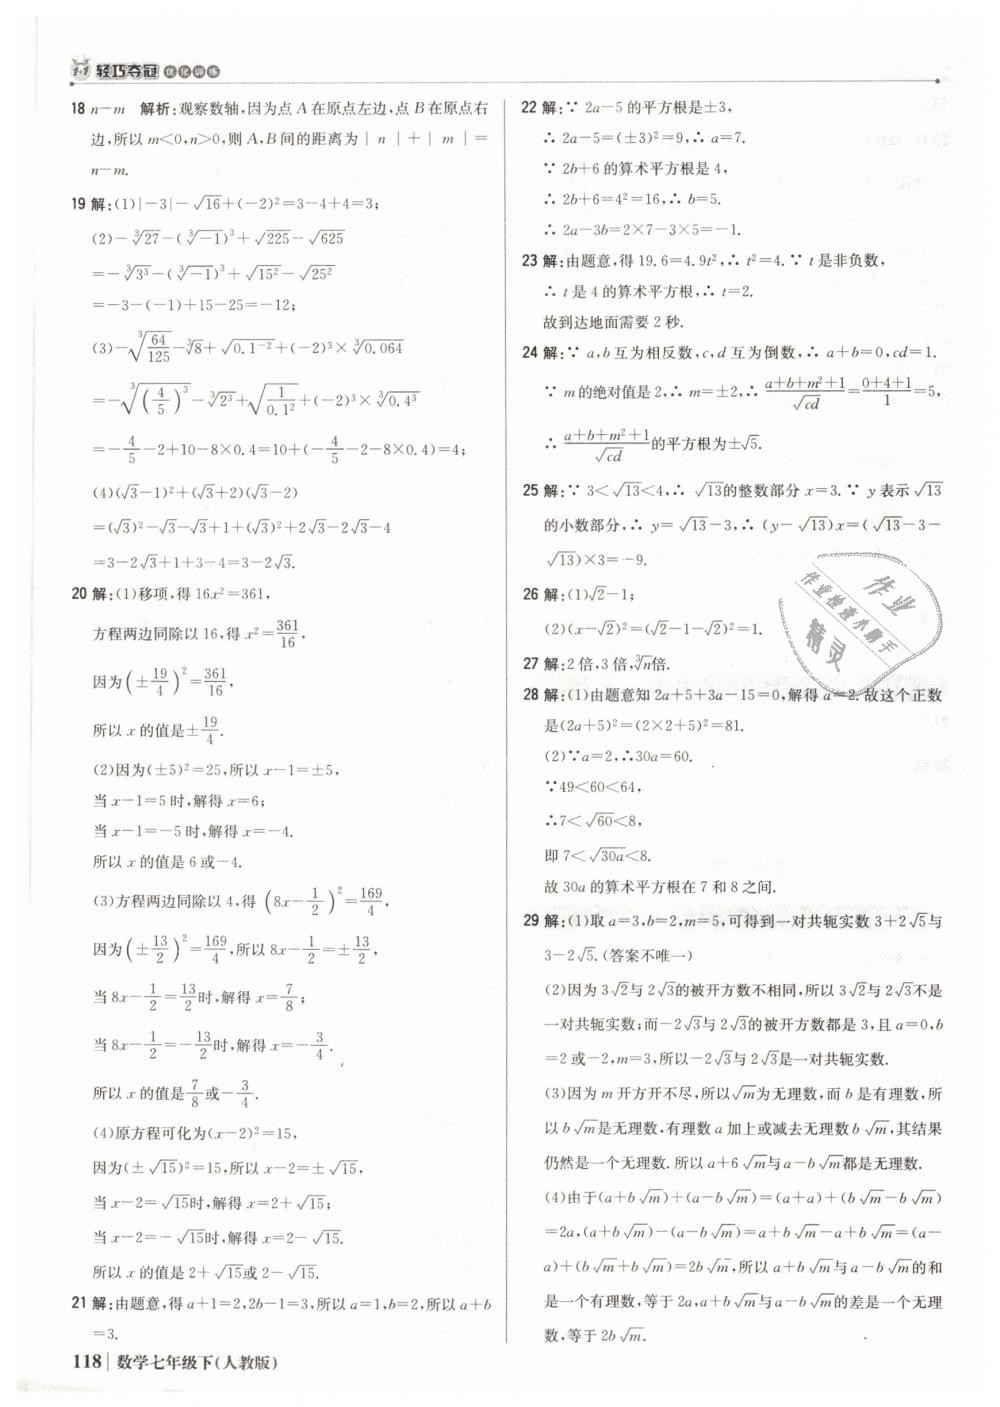 1+1 轻巧夺冠 优化训练
18 n－m 解析:观察数轴,因为点 A 在原点左边,点 B 在原点右
边,所以 m<0,n>0,则 A,B 间的距离为｜n｜+｜m｜=
n－m.
19 解:(1)|－3|－√16+(－2)²=3－4+4=3;
(2)－∛27－(∛－1)³+√225－√625
=－∛3³－(∛－1)³+√15²－√25²
=－3－(－1)+15－25=－12;
(3)－∛(64/125)－∛8+√0.1⁻²+(－2)³×∛0.064
=－∛(4/5)³－∛2³+√(1/0.1²)+(－2)³×∛0.4³
=－4/5－2+10－8×0.4=10+(－4/5－2－8×0.4)=4;
(4)(√3－1)²+(√3+2)(√3－2)
=(√3)²－√3－√3+1+(√3)²+2√3－2√3－4
=3－2√3+1+3－4=3－2√3.
20 解:(1)移项,得 16x²=361,
方程两边同除以 16,得 x²=361/16,
因为(±19/4)²=361/16,
所以 x 的值是±19/4.
(2)因为(±5)²=25,所以 x－1=±5,
当 x－1=5 时,解得 x=6;
当 x－1=－5 时,解得 x=－4.
所以 x 的值是 6 或－4.
(3)方程两边同除以 4,得 (8x－1/2)²=169/4,
因为(±13/2)²=169/4,所以 8x－1/2=±13/2,
当 8x－1/2=13/2时,解得 x=7/8;
当 8x－1/2=－13/2时,解得 x=－3/4.
所以 x 的值是7/8或－3/4.
(4)原方程可化为(x－2)²=15,
因为(±√15)²=15,所以 x－2=±√15,
当 x－2=√15时,解得 x=2+√15,
当 x－2=－√15时,解得 x=2－√15.
所以 x 的值是 2+√15或 2－√15.
21 解:由题意,得 a+1=2,2b－1=3,所以 a=1,b=2,所以 a+b
=3.
118 数学七年级下(人教版)
22 解:∵ 2a－5 的平方根是±3,
∴ 2a－5=(±3)²=9,∴ a=7.
∵ 2b+6 的算术平方根是 4,
∴ 2b+6=4²=16,∴ b=5.
∴ 2a－3b=2×7－3×5=－1.
23 解:由题意,得 19.6=4.9t²,∴ t²=4.∵ t 是非负数,
∴ t 是 4 的算术平方根,∴ t=2.
故到达地面需要 2 秒.
24 解:∵ a,b 互为相反数,c,d 互为倒数,∴ a+b=0,cd=1.
∵ m 的绝对值是 2,∴ m=±2,∴ (a+b+m²+1)/√cd=(0+4+1)/1=5,
∴ (a+b+m²+1)/√cd的平方根为±√5.
25 解:∵ 3<√13<4,∴ √13的整数部分 x=3.∵ y 表示√13
的小数部分,∴ y=√13－3,∴ (y－√13)x=(√13－3－
√13)×3=－9.
26 解:(1)√2－1;
(2)(x－√2)²=(√2－1－√2)²=1.
27 解:2 倍,3 倍,∛n倍.
28 解:(1)由题意知 2a+5+3a－15=0,解得 a=2.故这个正数
是(2a+5)²=(2×2+5)²=81.
(2)∵a=2,∴30a=60.
∵49<60<64,
∴7<√60<8,
即 7<√30a<8.
故 30a 的算术平方根在 7 和 8 之间.
29 解:(1)取 a=3,b=2,m=5,可得到一对共轭实数 3+2√5与
3－2√5.(答案不唯一)
(2)因为 3√2与 2√3的被开方数不相同,所以 3√2与 2√3不是
一对共轭实数;而－2√3与 2√3的被开方数都是 3,且 a=0,b
=2 或－2,m=3,所以－2√3与 2√3是一对共轭实数.
(3)因为 m 开方开不尽,所以√m为无理数,而 b 是有理数,所
以 b√m是无理数,有理数 a 加上或减去无理数 b√m,其结果
仍然是一个无理数.所以 a+6√m与 a－b√m都是无理数.
(4)由于(a+b√m)+(a－b√m)=(a+a)+(b√m－b√m)
=2a,(a+b√m)－(a－b√m)=a+b√m－a+b√m=(a－
a)+(b√m+b√m)=2b√m,所以 a+b√m与 a－b√m的和
是一个有理数,等于 2a,a+b√m与 a－b√m的差是一个无理
数,等于 2b√m.
作业
作业检查小助手
精灵